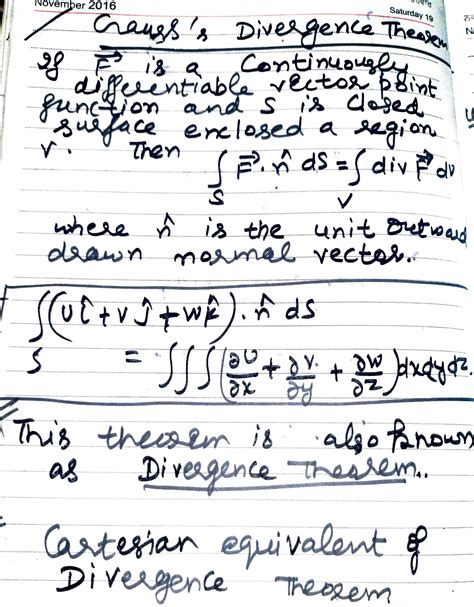 November 2016
Saturday 19
Gauss's Divergence Theorem
If F⃗ is a Continuously
differentiable vector point
function and S is closed
surface enclosed a region
V. Then
∫_S F⃗ · n̂ dS = ∫_V div F⃗ dv
where n̂ is the unit outward
drawn normal vector.
∫_S (U î + V ĵ + W k̂) · n̂ dS
= ∫∫∫ (∂U/∂x + ∂V/∂y + ∂W/∂z) dx dy dz.
This theorem is also known
as Divergence Theorem..
Cartesian equivalent of
Divergence Theorem